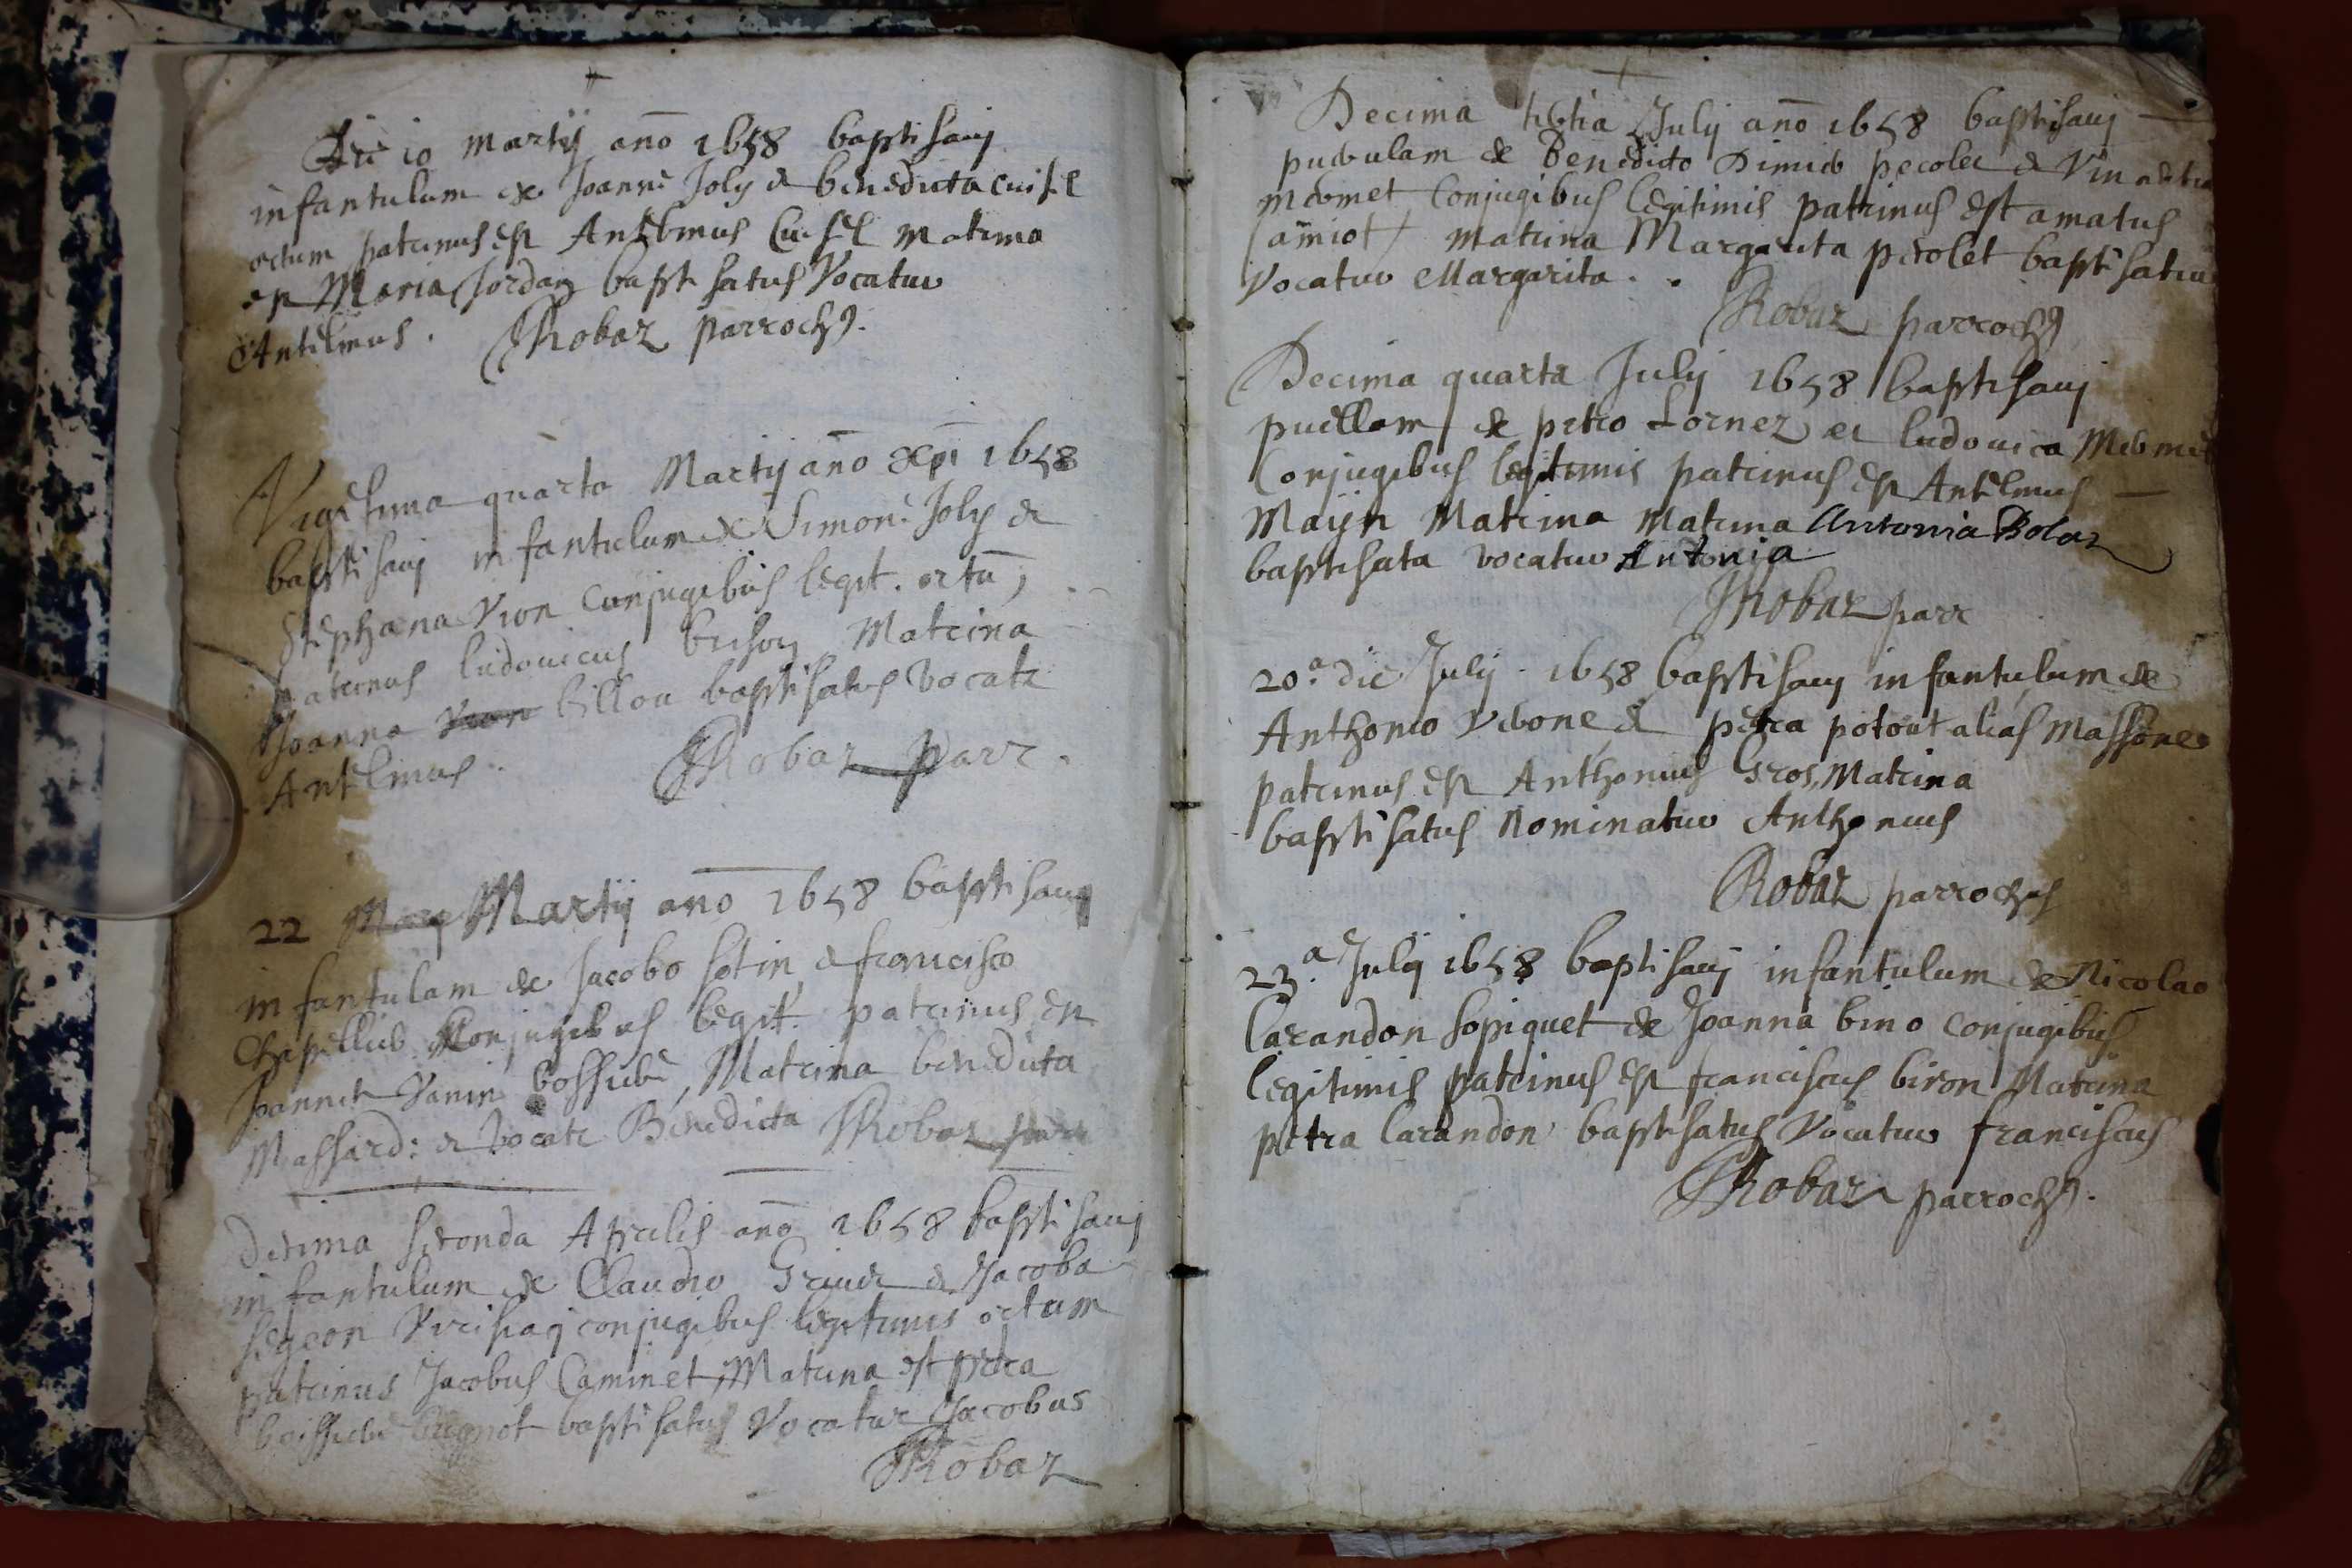 Die 10 martij año 1658 baptisavj
infantulum ex Joanne Joly & benedicta cuisel
ortum patrinus est Antelmus Cuisel matrina
est Maria Jordan baptisatus Vocatur
Antelmus. Robaz parroch9.
Vigesima quarta Martij año xpi 1658
baptisavj infantulum ex Simone Joly &
Stephana Vion Conjugibus legit. ortũ,
patrinus ludovicus brison Matrina
Joanna billou baptisatus Vocatr
Antelmus. Robaz parr.
22 Martij año 1658 baptisavj
infantulam ex Jacobo sotin & francisca
Chapellier Conjugibus legit. patrinus est
Joannes Vanin bossube, Matrina benedicta
Massard: & vocatr Benedicta Robaz parr
Decima seconda Aprilis año 1658 baptisavj
infantulum ex Claudio & Jacoba
conjugibus legitimis ortum
patrinus Jacobus Caminet, Matrina est petra
baptisatus Vocatur Jacobus
Robaz
Decima tertia July año 1658 baptisavj
puerulam ex Benedicto & Vin
mermet Conjugibus legitimis patrinus est amatus
amiot matrina Margarita perolet baptisatur
Vocatur Margarita.
Robaz parroch9
Decima quarta July 1658 baptisavj
puellam ex petro Lornez et ludovica Mermet
Conjugibus legitimis patrinus est Antelmus
Majn Matrina Matrina Antonia Bolaz
baptisata vocatur Antonia
Robaz parr
20.a die July 1658 baptisavj infantulum ex
Anthonio Verone & petra potout alias Massone
patrinus est Anthonius Gros, Matrina
baptisatus Nominatur Anthonius
Robaz parrochus
23.a July 1658 baptisavj infantulum ex Nicolao
Carandon sopiquet & Joanna bino conjugibus
legitimis patrinus est franciscus biron Matrina
petra Carandon baptisatus Vocatur franciscus
Robaz parroch9.